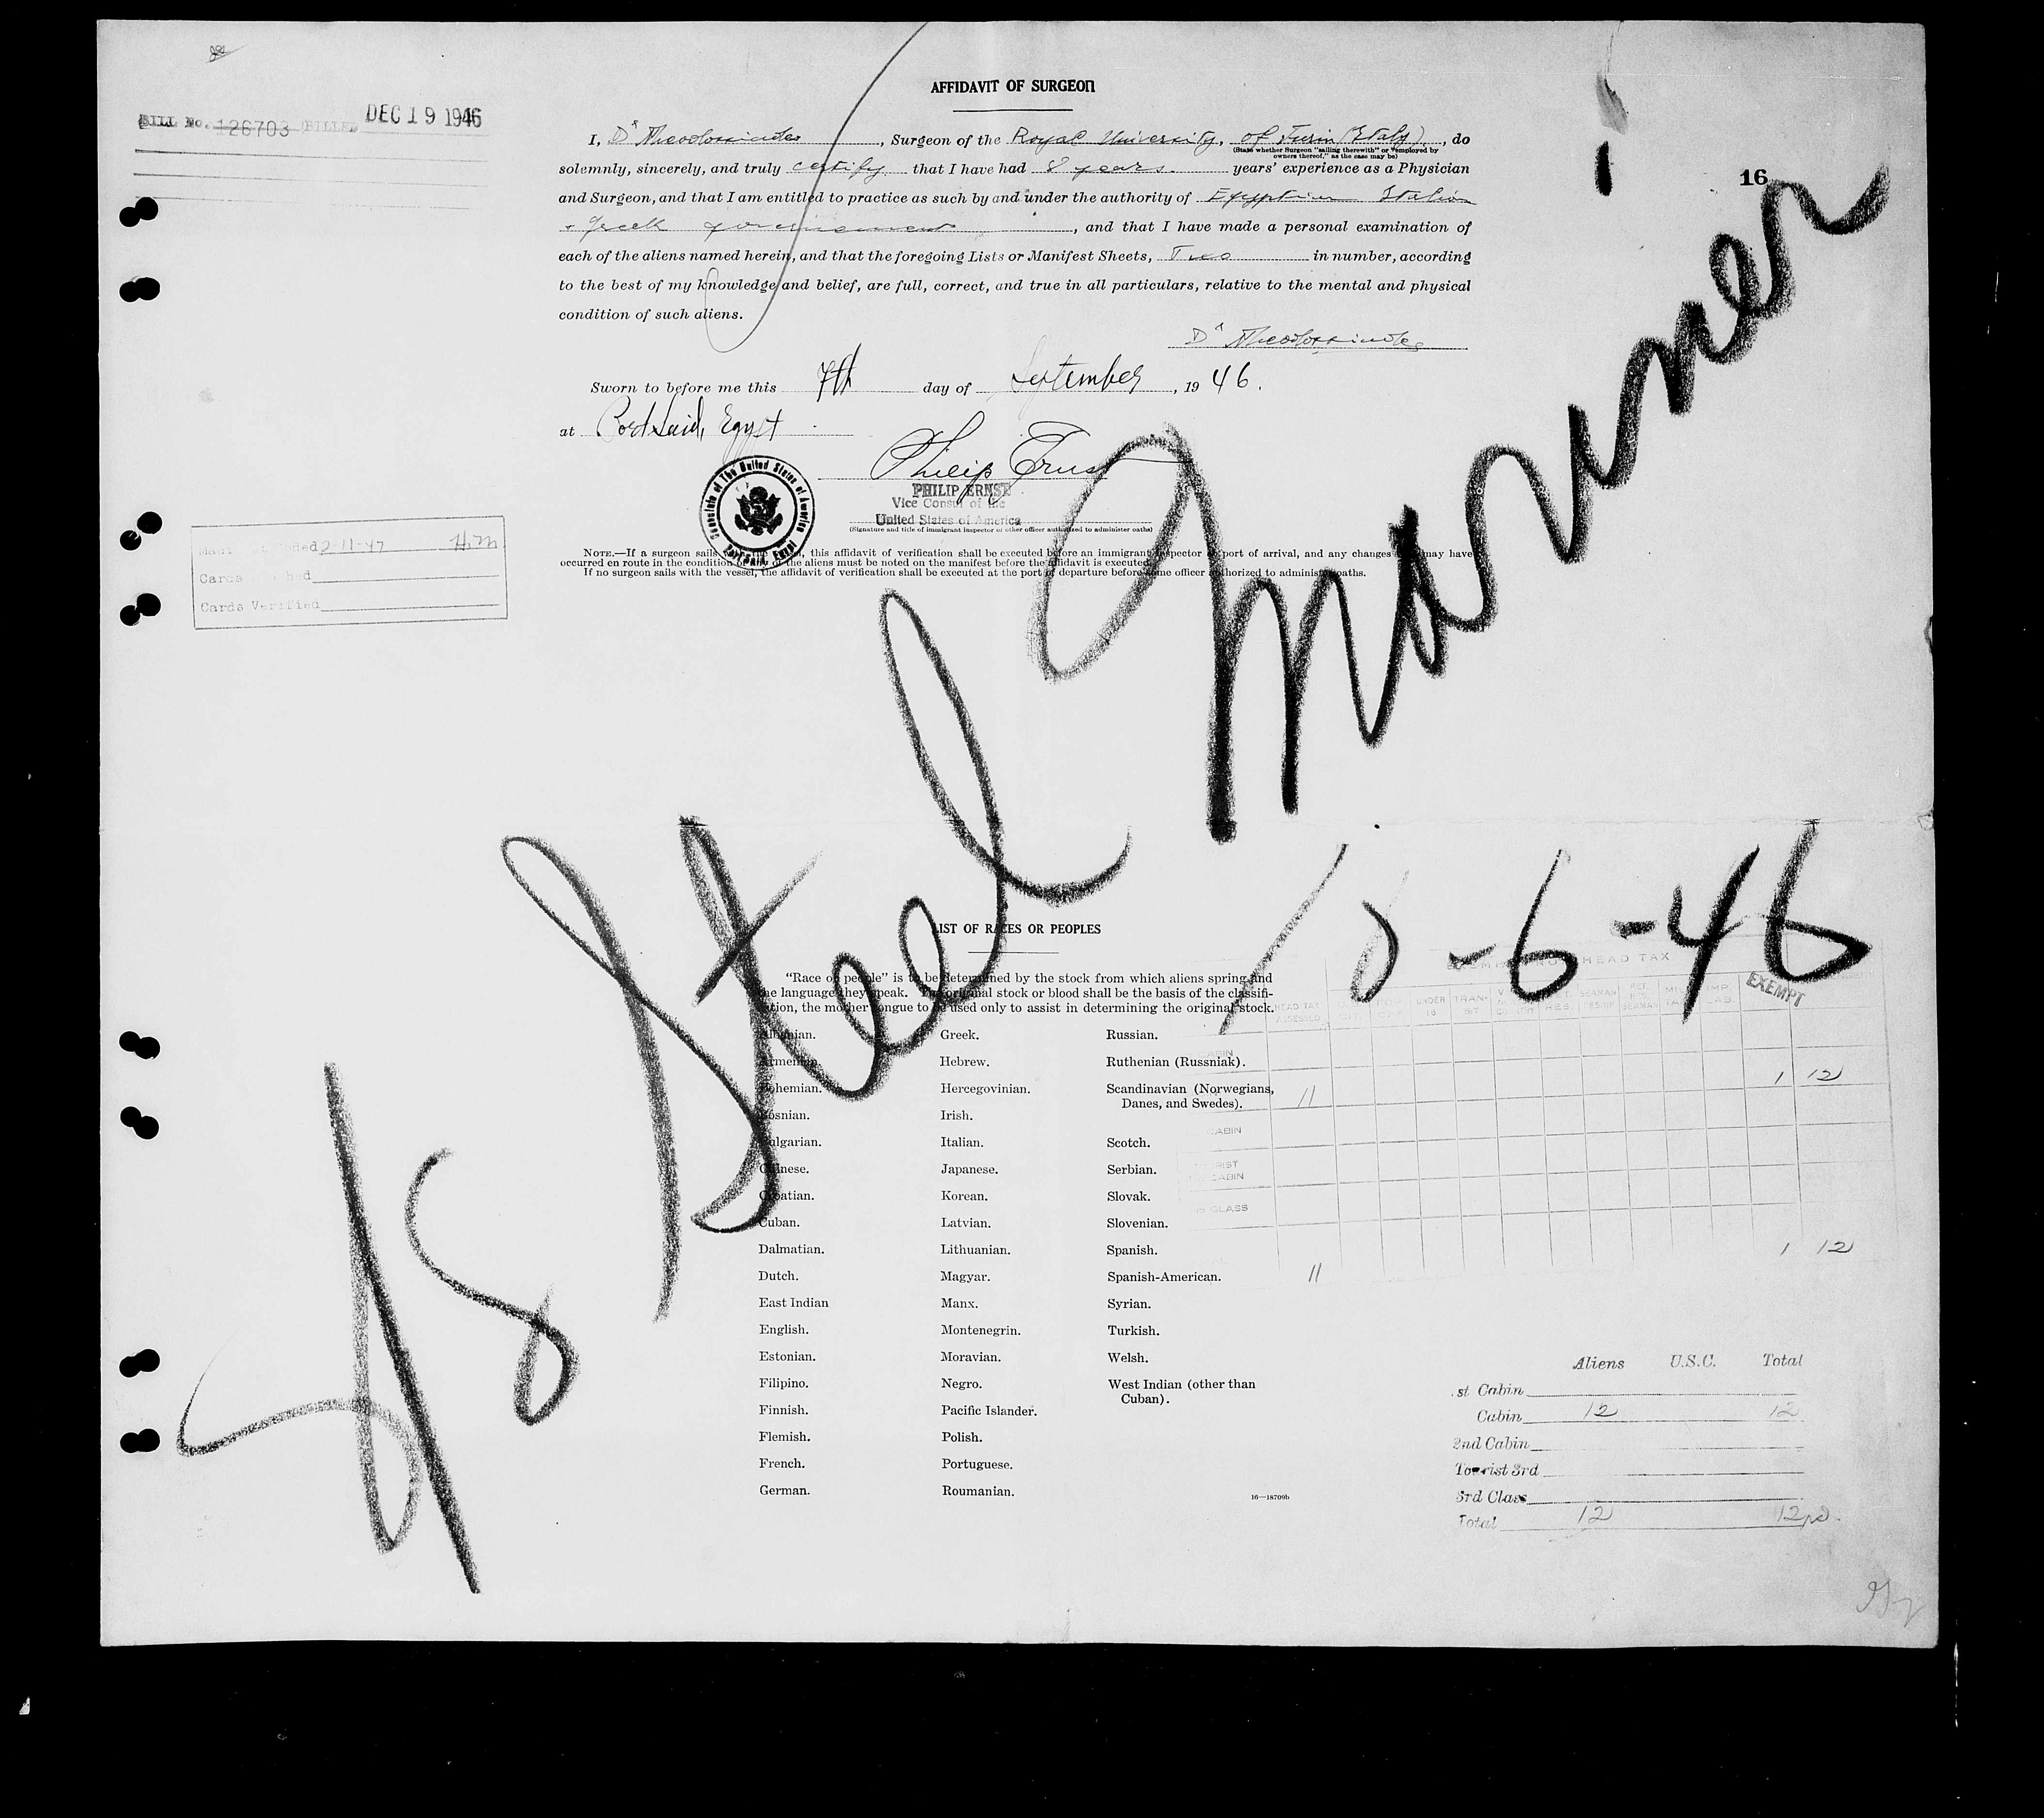 AFFIDAVIT OF SURGEON
BILL No. 126703 BILLED DEC 19 1946
I, Dr Theodossiades, Surgeon of the Royal University, of Turin (Italy), do
(State whether Surgeon "sailing therewith" or "employed by
owners thereof," as the case may be)
solemnly, sincerely, and truly certify that I have had 8 years. years' experience as a Physician
16
and Surgeon, and that I am entitled to practice as such by and under the authority of Egyptian Italian
+ Greek government, and that I have made a personal examination of
each of the aliens named herein, and that the foregoing Lists or Manifest Sheets, Two in number, according
to the best of my knowledge and belief, are full, correct, and true in all particulars, relative to the mental and physical
condition of such aliens.
Dr Theodossiades
Sworn to before me this 7th day of September, 1946.
at Port Said, Egypt
Philip Ernst
PHILIP ERNST
Vice Consul of the
United States of America
(Signature and title of immigrant inspector or other officer authorized to administer oaths)
Consulate of The United States of America
Port Said, Egypt
2-11-47 H.M
Cards
Cards Verified
NOTE.—If a surgeon sails this affidavit of verification shall be executed before an immigrant inspector port of arrival, and any changes may have
occurred en route in the condition of the aliens must be noted on the manifest before the affidavit is executed
If no surgeon sails with the vessel, the affidavit of verification shall be executed at the port of departure before some officer authorized to administer oaths.
SS Steel Mariner
10-6-46
LIST OF RACES OR PEOPLES
"Race or people" is to be determined by the stock from which aliens spring and
the language they speak. The original stock or blood shall be the basis of the classifi-
cation, the mother tongue to be used only to assist in determining the original stock.
Albanian. Greek. Russian.
Armenian. Hebrew. Ruthenian (Russniak).
Bohemian. Hercegovinian. Scandinavian (Norwegians,
Danes, and Swedes).
Bosnian. Irish.
Bulgarian. Italian. Scotch.
Chinese. Japanese. Serbian.
Croatian. Korean. Slovak.
Cuban. Latvian. Slovenian.
Dalmatian. Lithuanian. Spanish.
Dutch. Magyar. Spanish-American.
East Indian Manx. Syrian.
English. Montenegrin. Turkish.
Estonian. Moravian. Welsh.
Filipino. Negro. West Indian (other than
Cuban).
Finnish. Pacific Islander.
Flemish. Polish.
French. Portuguese.
German. Roumanian.
16—18709b
HEAD TAX
HEAD TAX ASSESSED UNDER 16 TRANSIT SEAMAN EXEMPT
11 1 12
CABIN
TOURIST
CABIN
CLASS
11 1 12
Aliens U.S.C. Total
st Cabin
Cabin 12 12
2nd Cabin
Tourist 3rd
3rd Class
Total 12 12